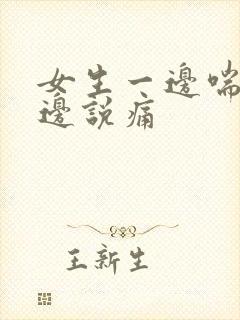 女生一邊喘
邊說痛
王新生